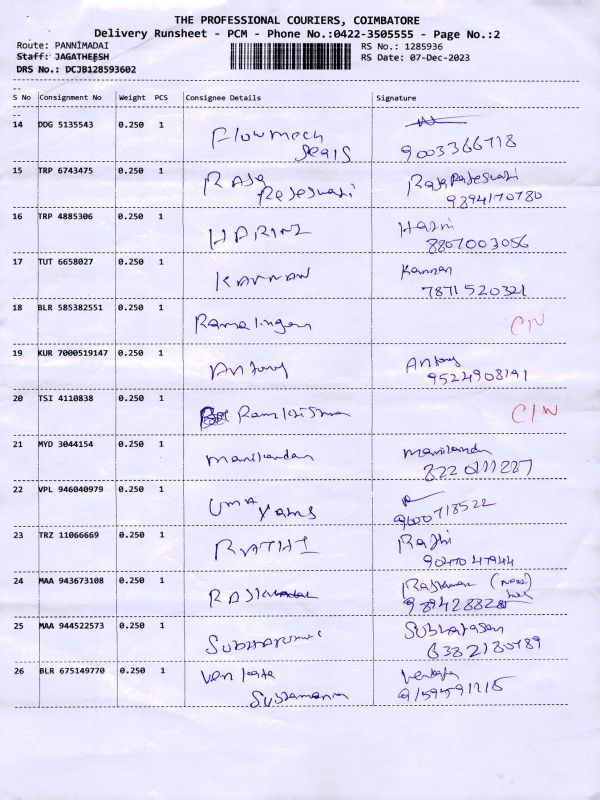 THE PROFESSIONAL COURIERS, COIMBATORE
Delivery Runsheet - PCM - Phone No.:0422-3505555 - Page No.:2
Route: PANNIMADAI RS No.: 1285936
Staff: JAGATHEESH RS Date: 07-Dec-2023
DRS No.: DCJB128593602
S No Consignment No Weight PCS Consignee Details Signature
14 DDG 5135543 0.250 1 Flowmech
Seals 9003366718
15 TRP 6743475 0.250 1 Raja Rajeswari
Rajeswari 9894170780
16 TRP 4885306 0.250 1 HARINI Harini
8807003056
17 TUT 6658027 0.250 1 KANNAN Kannan
7871520321
18 BLR 585382551 0.250 1 Ramalingam C/N
19 KUR 7000519147 0.250 1 Antony Antony
9524908191
20 TSI 4110838 0.250 1 Ramkrishna C/N
21 MYD 3044154 0.250 1 Manikandan
22 VPL 946040979 0.250 1 Uma
9600718522
23 TRZ 11066669 0.250 1 RATHI
24 MAA 943673108 0.250 1
25 MAA 944522573 0.250 1
6382180789
26 BLR 675149770 0.250 1 Venkata Venkata
Subramanian 9159591115